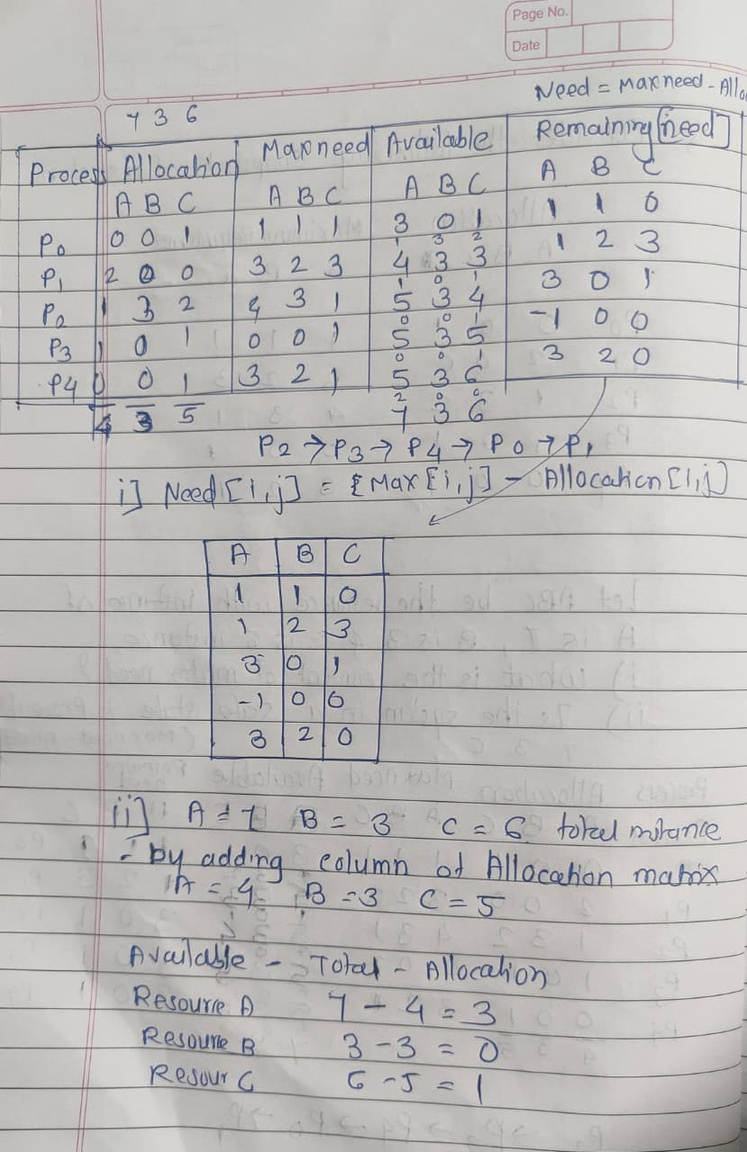 Page No.
Date
Need = Maxneed - Allo
7 3 6
Process Allocation Maxneed Available Remaining [need]
A B C A B C A B C A B C
P0 0 0 1 1 1 1 3 0 1 1 1 0
1 3 2
P1 2 0 0 3 2 3 4 3 3 1 2 3
1 0 1
P2 1 3 2 4 3 1 5 3 4 3 0 1
0 0 1
P3 1 0 1 0 0 1 5 3 5 -1 0 0
0 0 1
P4 0 0 1 3 2 1 5 3 6 3 2 0
2 0 0
4 3 5 7 3 6
P2 → P3 → P4 → P0 → P1
i] Need [i,j] = {Max [i,j] - Allocation [i,j]
A B C
1 1 0
1 2 3
3 0 1
-1 0 0
3 2 0
ii] A = 7 B = 3 C = 6 total instance
- by adding column of Allocation matrix
A = 4 B = 3 C = 5
Available - Total - Allocation
Resourie A 7 - 4 = 3
Resourie B 3 - 3 = 0
Resour C 6 - 5 = 1